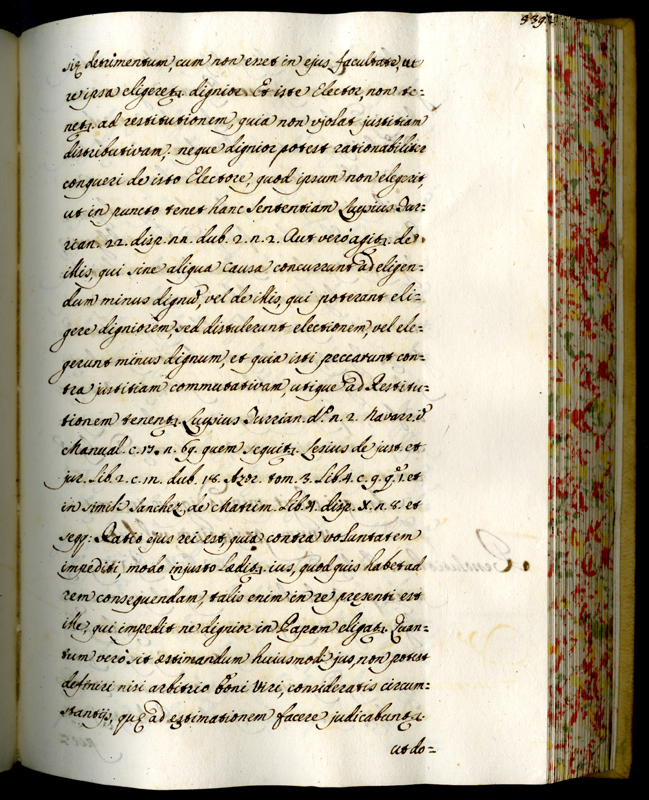 339
siæ detrimentum, cum non esset in ejus facultate, ut
re ipsa eligeretr. dignior. Et iste Elector, non te-
netr. ad restitutionem, quia non violat justitiam
distributivam, neque dignior potest rationabiliter
conqueri de isto Electore, quod ipsum non elegerit,
ut in puncto tenet hanc sententiam Luysius Tur-
rian. 22. disp. dub. 2. n. 2. Aut vero agitr. de
illis, qui sine aliqua causa concurrunt ad eligen-
dum minus dignũ, vel de illis, qui poterant eli-
gere digniorem, sed distulerunt electionem, vel ele-
gerunt minus dignum, et quia isti peccarunt con-
tra justitiam commutativam, utique ad Restitu-
tionem tenentr. Luysius Turrian. n. 2. Navarr. in
Manual. c. 17. n. 69. quem sequitr. Lesius de just. et
jur. Lib. 2. c. dub. 18. Azor. tom. 3. Lib. 4. c. 9. q. 1. et
in simili Sanchez, de Matrim. Lib. disp. X. n. 8. et
seqq: Ratio ejus rei est, quia contra voluntatem
impediti, modo injusto læditr. ius, quod quis habet ad
rem consequendam, talis enim in re presenti est
ille, qui impedit ne dignior in Papam eligatr. Quan-
tum vero sit æstimandum huiusmodi jus, non potest
definiri nisi arbitrio boni Viri, consideratis circum-
stantijs, quæ ad estimationem facere judicabuntr.
ut do-